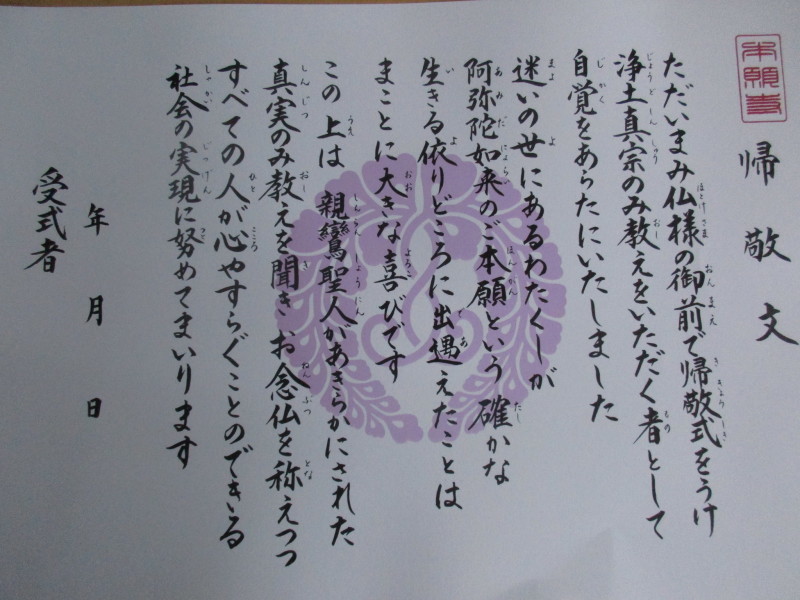 本願寺
帰敬文
ただいまみ仏様の御前で帰敬式をうけ
浄土真宗のみ教えをいただく者として
自覚をあらたにいたしました
迷いの世にあるわたくしが
阿弥陀如来のご本願という確かな
生きる依りどころに出遇えたことは
まことに大きな喜びです
この上は 親鸞聖人があきらかにされた
真実のみ教えを聞き お念仏を称えつつ
すべての人が心やすらぐことのできる
社会の実現に努めてまいります
年 月 日
受式者